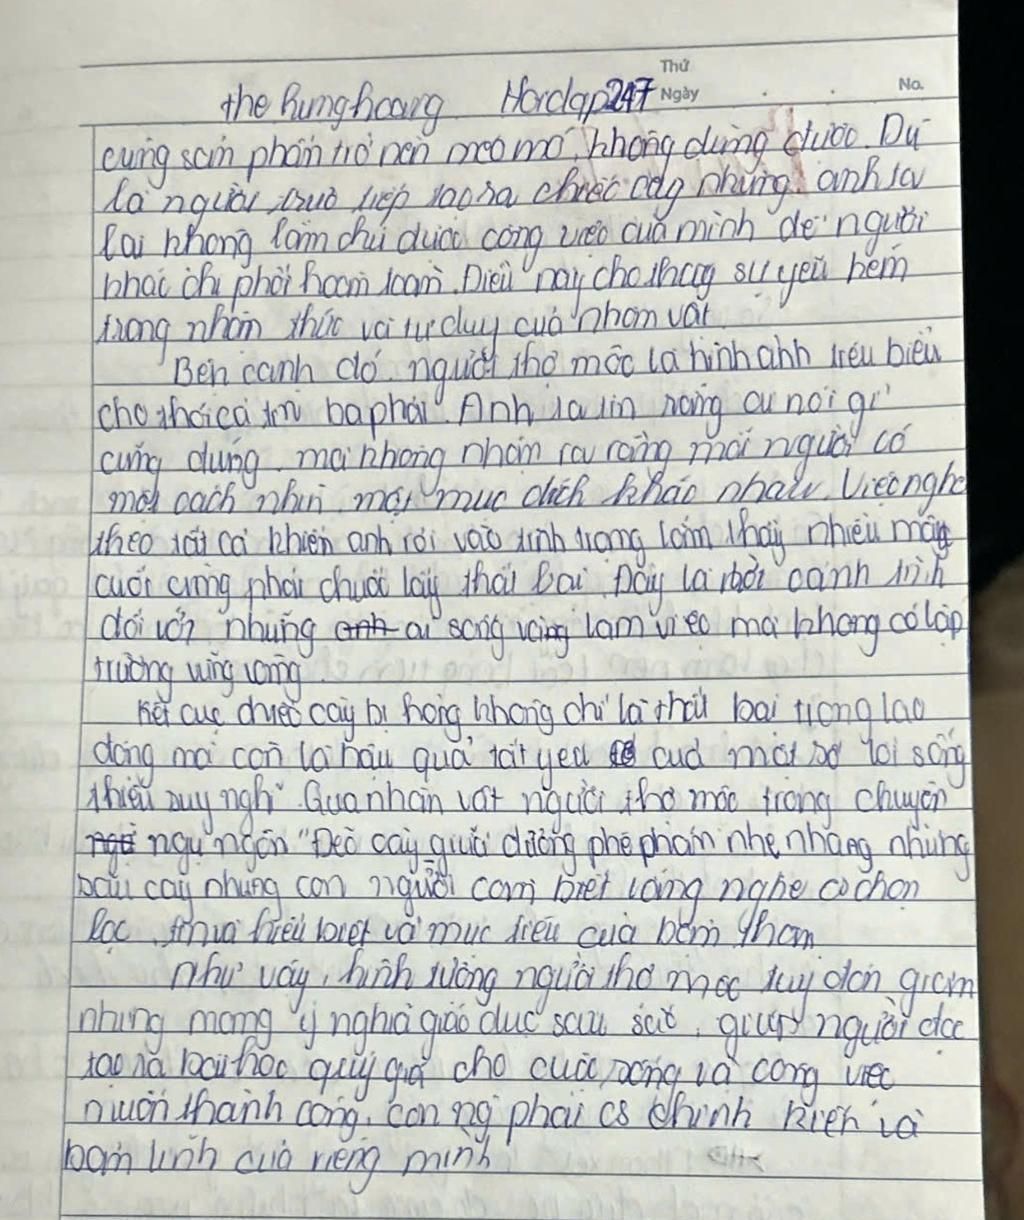 Thứ
Ngày
No.
the hunghoang Hoclap247
cuùng sản phẩm trở nên méo mó, không dùng được. Dù
là người trực tiếp tạo ra chiếc cày nhưng anh ta
lại không làm chủ được công việc của mình để người
khác chi phối hoàn toàn. Điều này cho thấy sự yếu kém
trong nhận thức và tư duy của nhân vật
Bên cạnh đó, người thợ mộc là hình ảnh tiêu biểu
cho thói cả tin ba phải. Anh ta tin rằng ai nói gì
cũng đúng mà không nhận ra rằng mỗi người có
một cách nhìn, một mục đích khác nhau. Việc nghe
theo tất cả khiến anh rơi vào tình trạng lắm thầy nhiều ma
cuối cùng phải chuốc lấy thất bại. Đây là bài cảnh tỉnh
đối với những anh ai sống và làm việc mà không có lập
trường vững vàng
Kết cục chiếc cày bị hỏng không chỉ là thất bại trong lao
động mà còn là hậu quả tất yếu của một lối sống
thiếu suy nghĩ. Qua nhân vật người thợ mộc trong chuyện
ngụ ngôn "Đẽo cày giữa đường phê phán nhẹ nhàng nhưng
sâu cay những con người cần biết lắng nghe có chọn
lọc, hiểu biết và mục tiêu của bản thân
Như vậy, hình tượng người thợ mộc tuy đơn giản
nhưng mang ý nghĩa giáo dục sâu sắc, giúp người đọc
tạo ra bài học quý giá cho cuộc sống và công việc
muốn thành công, con ng phải có chính kiến và
bản lĩnh của riêng mình